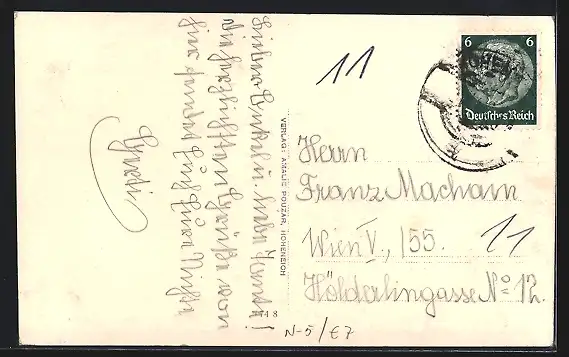 Lieber Onkel u. liebe Tante!
Die herzlichsten Grüße von
hier sendet Euch Eure Nichte
VERLAG: AMALIE POUZAR, HOHENEICH
11
6 6
Deutsches Reich
Herrn
Franz Machain
Wien V., /55.
11
Hölderlingasse No 12.
N-5/E7